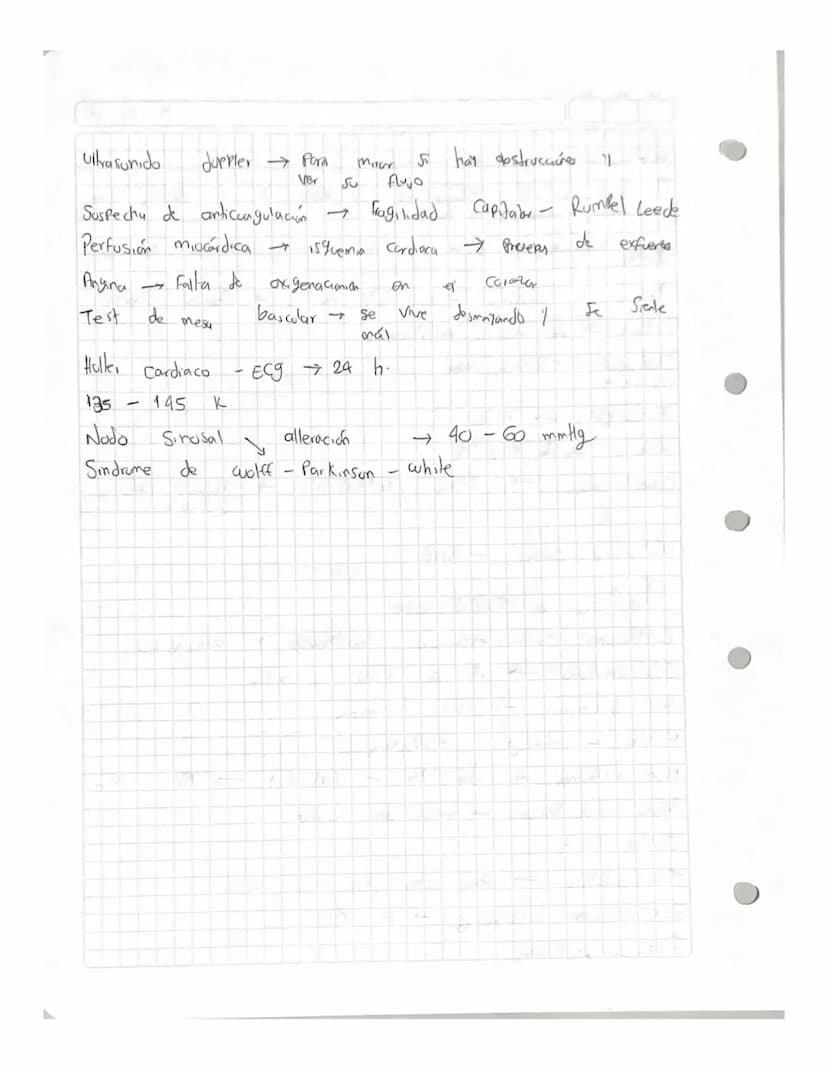 Ultrasonido duppler → Para mirar si hay obstrucciónes y
ver su flujo
Sospecha de anticuagulación → Fragilidad Capilar - Rumpel Leede
Perfusión miocárdica → isquemia Cardiaca → Prueba de exfuerzo
Angina → Falta de oxigenacionich en el Corazón
Test de mesa bascular → se vive desmayando y se siente
mál
Holter Cardiaco - ECG → 24 h.
135 - 145 K
Nodo Sinusal ↘ alteración → 40 - 60 mmHg
Sindrome de wolff - Parkinson - white